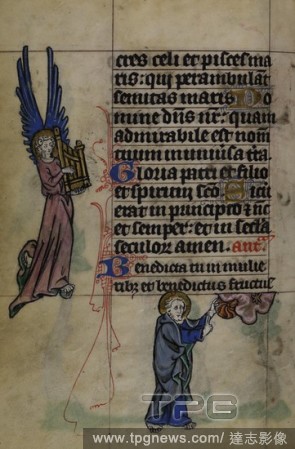 cres celi et pisces ma
ris: qui perambulāt
semitas maris Do
mine dn̄s nr̄: quam
admirabile est nom̄
tuum in uniu͛sa tr̄a.
Gloria patri et filio
et spiritui sc̄o Sicu
erat in principio ⁊ n̄c
et semper: et in sec̄la
seculorum amen. ant̄.
Benedicta tu in mulie
ribꝫ et benedictus fructus
TPG
www.tpgnews.com/ 達志影像